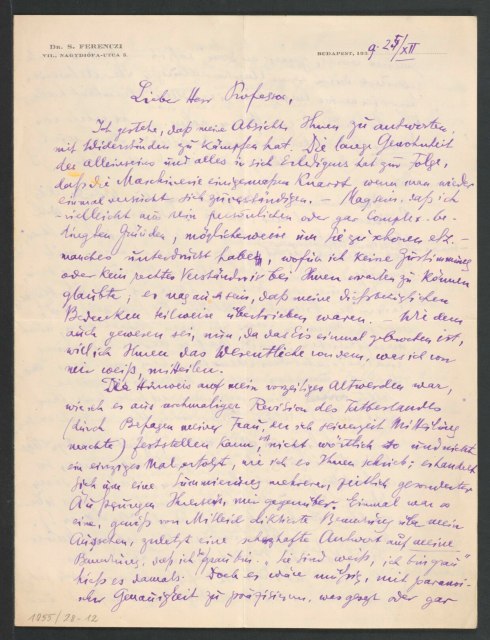 Dr. S. FERENCZI
VII., NAGYDIÓFA-UTCA 3.
BUDAPEST, 192 9. 25/XII
Lieber Herr Professor,
Ich gestehe, daß meine Absicht Ihnen zu antworten,
mit Widerständen zu kämpfen hat. Die lange Gewohnheit
des Alleinseins und alles in sich Erledigens hat zur Folge,
daß die Maschinerie einigermaßen knarrt wenn man wieder
einmal versucht sich zu verständigen. – Mag sein, daß ich
vielleicht aus rein persönlichen oder gar Complex-be-
dingten Gründen, möglicherweise um Sie zu schonen etz. –
manches unterdrückt habe, wofür ich keine Zustimmung
oder kein rechtes Verständnis bei Ihnen erwarten zu können
glaubte; es mag auch sein, daß meine diesbezüglichen
Bedenken teilweise übertrieben waren. – Wie dem
auch gewesen sei, nun, da das Eis einmal gebrochen ist,
will ich Ihnen das Wesentliche von dem, was ich von
mir weiß, mitteilen.
Der Hinweis auf mein vorzeitiges Altwerden war,
wie ich es aus nochmaliger Revision des Tatbestandes
(durch Befragen meiner Frau, der ich seinerzeit Mitteilung
machte) feststellen kann, nicht wörtlich so und nicht
ein einziges Mal erfolgt, wie ich es Ihnen schrieb; es handelt
sich um eine Summierung mehrerer, zeitlich gesonderter
Äußerungen Ihrerseits mir gegenüber. Einmal war es
eine, gewiß von Mitleid diktierte Bemerkung über mein
Aussehen, zuletzt eine scherzhafte Antwort auf meine
Bemerkung, daß ich grau bin. „Sie sind weiß, ich bin grau"
hieß es damals. Doch es wäre müßig, mit
Genauigkeit zu präzisieren, was gesagt oder gar
1055/28-12